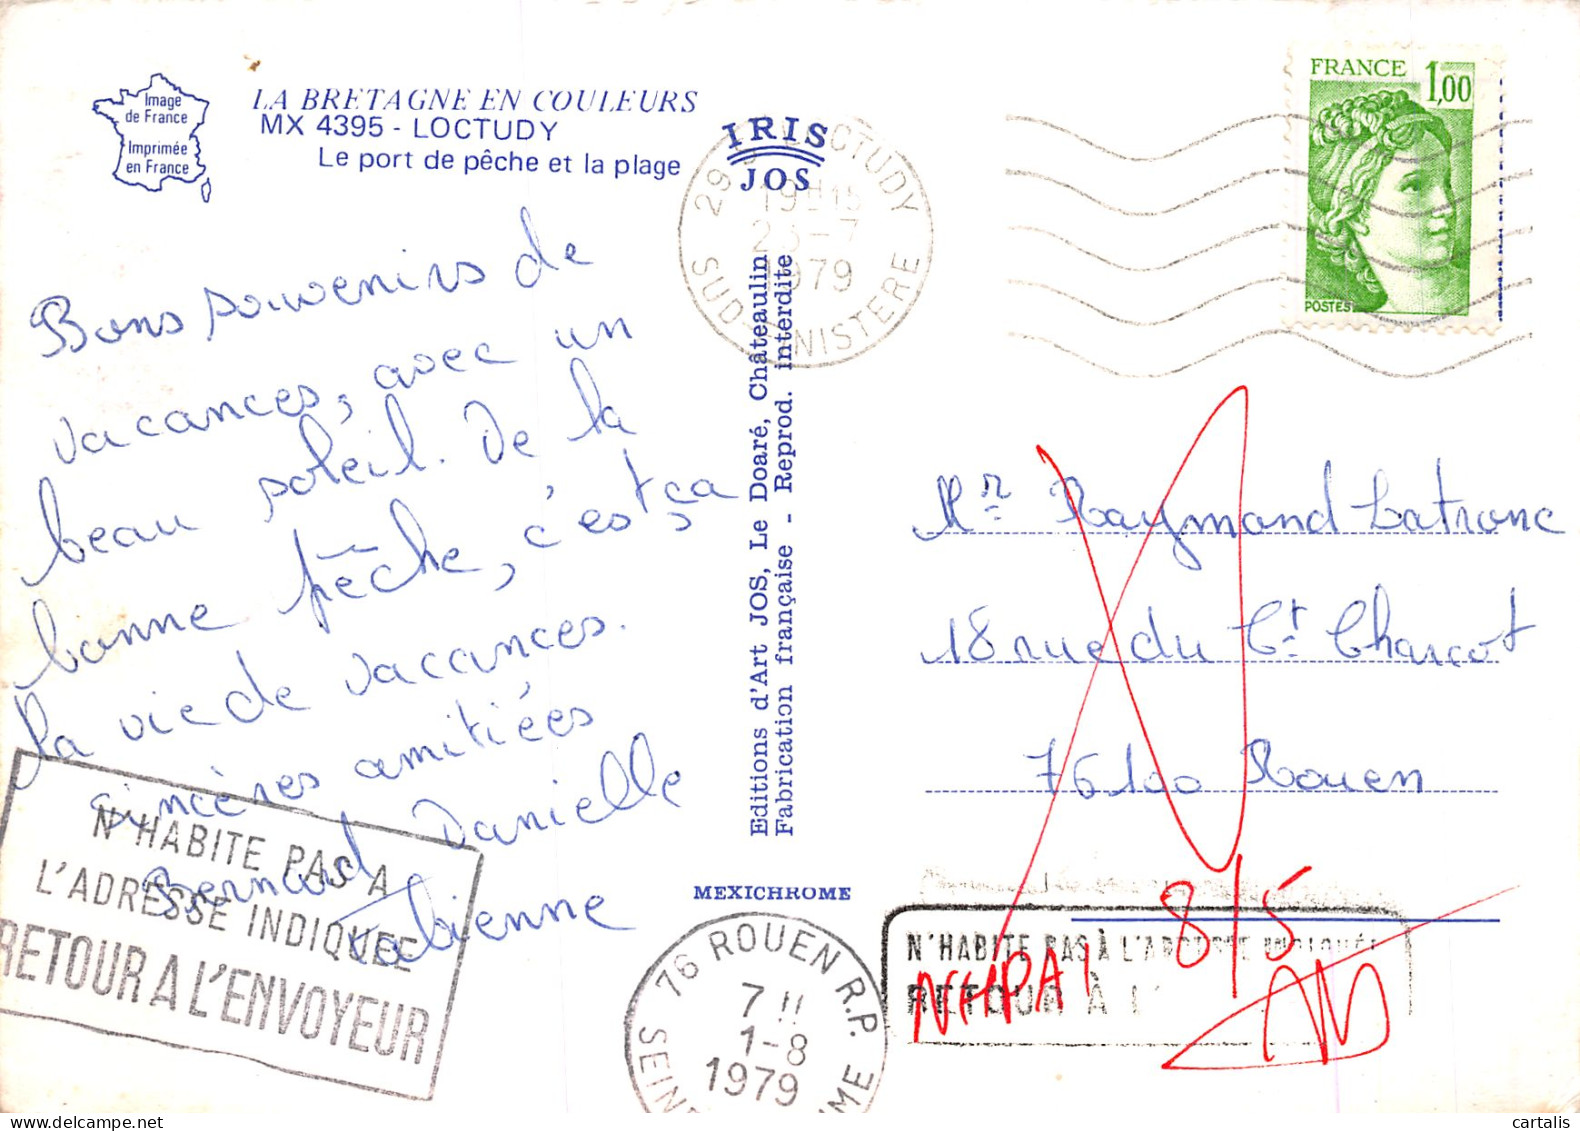 Image
de France
Imprimée
en France
LA BRETAGNE EN COULEURS
MX 4395 - LOCTUDY
Le port de pêche et la plage
IRIS
JOS
LOCTUDY
19H15
-7
1979
SUD-FINISTERE
FRANCE 1,00
POSTES
Bons souvenirs de
vacances, avec un
beau soleil. De la
bonne pêche, c'est ça
la vie de vacances.
sincères amitiés
Bernard Danielle
Fabienne
Editions d'Art JOS, Le Doaré, Châteaulin
Fabrication française - Reprod. interdite
MEXICHROME
Mr Raymond Latronc
18 rue du Ct Charcot
76100 Rouen
N'HABITE PAS A
L'ADRESSE INDIQUEE
RETOUR A L'ENVOYEUR
76 ROUEN R.P.
7H
1-8
1979
N'HABITE PAS À L'ADRESSE INDIQUÉE
RETOUR À L'
NHPAI
8/5
cartalis